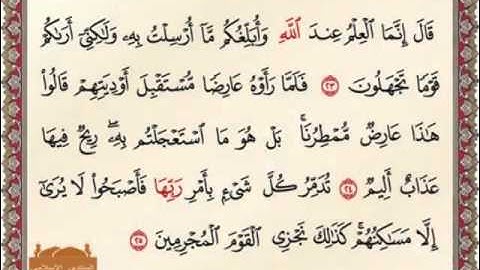 قَالَ إِنَّمَا ٱلْعِلْمُ عِندَ ٱللَّهِ وَأُبَلِّغُكُم مَّآ أُرْسِلْتُ بِهِۦ وَلَٰكِنِّىٓ أَرَىٰكُمْ
قَوْمًا تَجْهَلُونَ ٢٣ فَلَمَّا رَأَوْهُ عَارِضًا مُّسْتَقْبِلَ أَوْدِيَتِهِمْ قَالُوا۟
هَٰذَا عَارِضٌ مُّمْطِرُنَا ۚ بَلْ هُوَ مَا ٱسْتَعْجَلْتُم بِهِۦ ۖ رِيحٌ فِيهَا
عَذَابٌ أَلِيمٌ ٢٤ تُدَمِّرُ كُلَّ شَىْءٍۭ بِأَمْرِ رَبِّهَا فَأَصْبَحُوا۟ لَا يُرَىٰٓ
إِلَّا مَسَٰكِنُهُمْ ۚ كَذَٰلِكَ نَجْزِى ٱلْقَوْمَ ٱلْمُجْرِمِينَ ٢٥